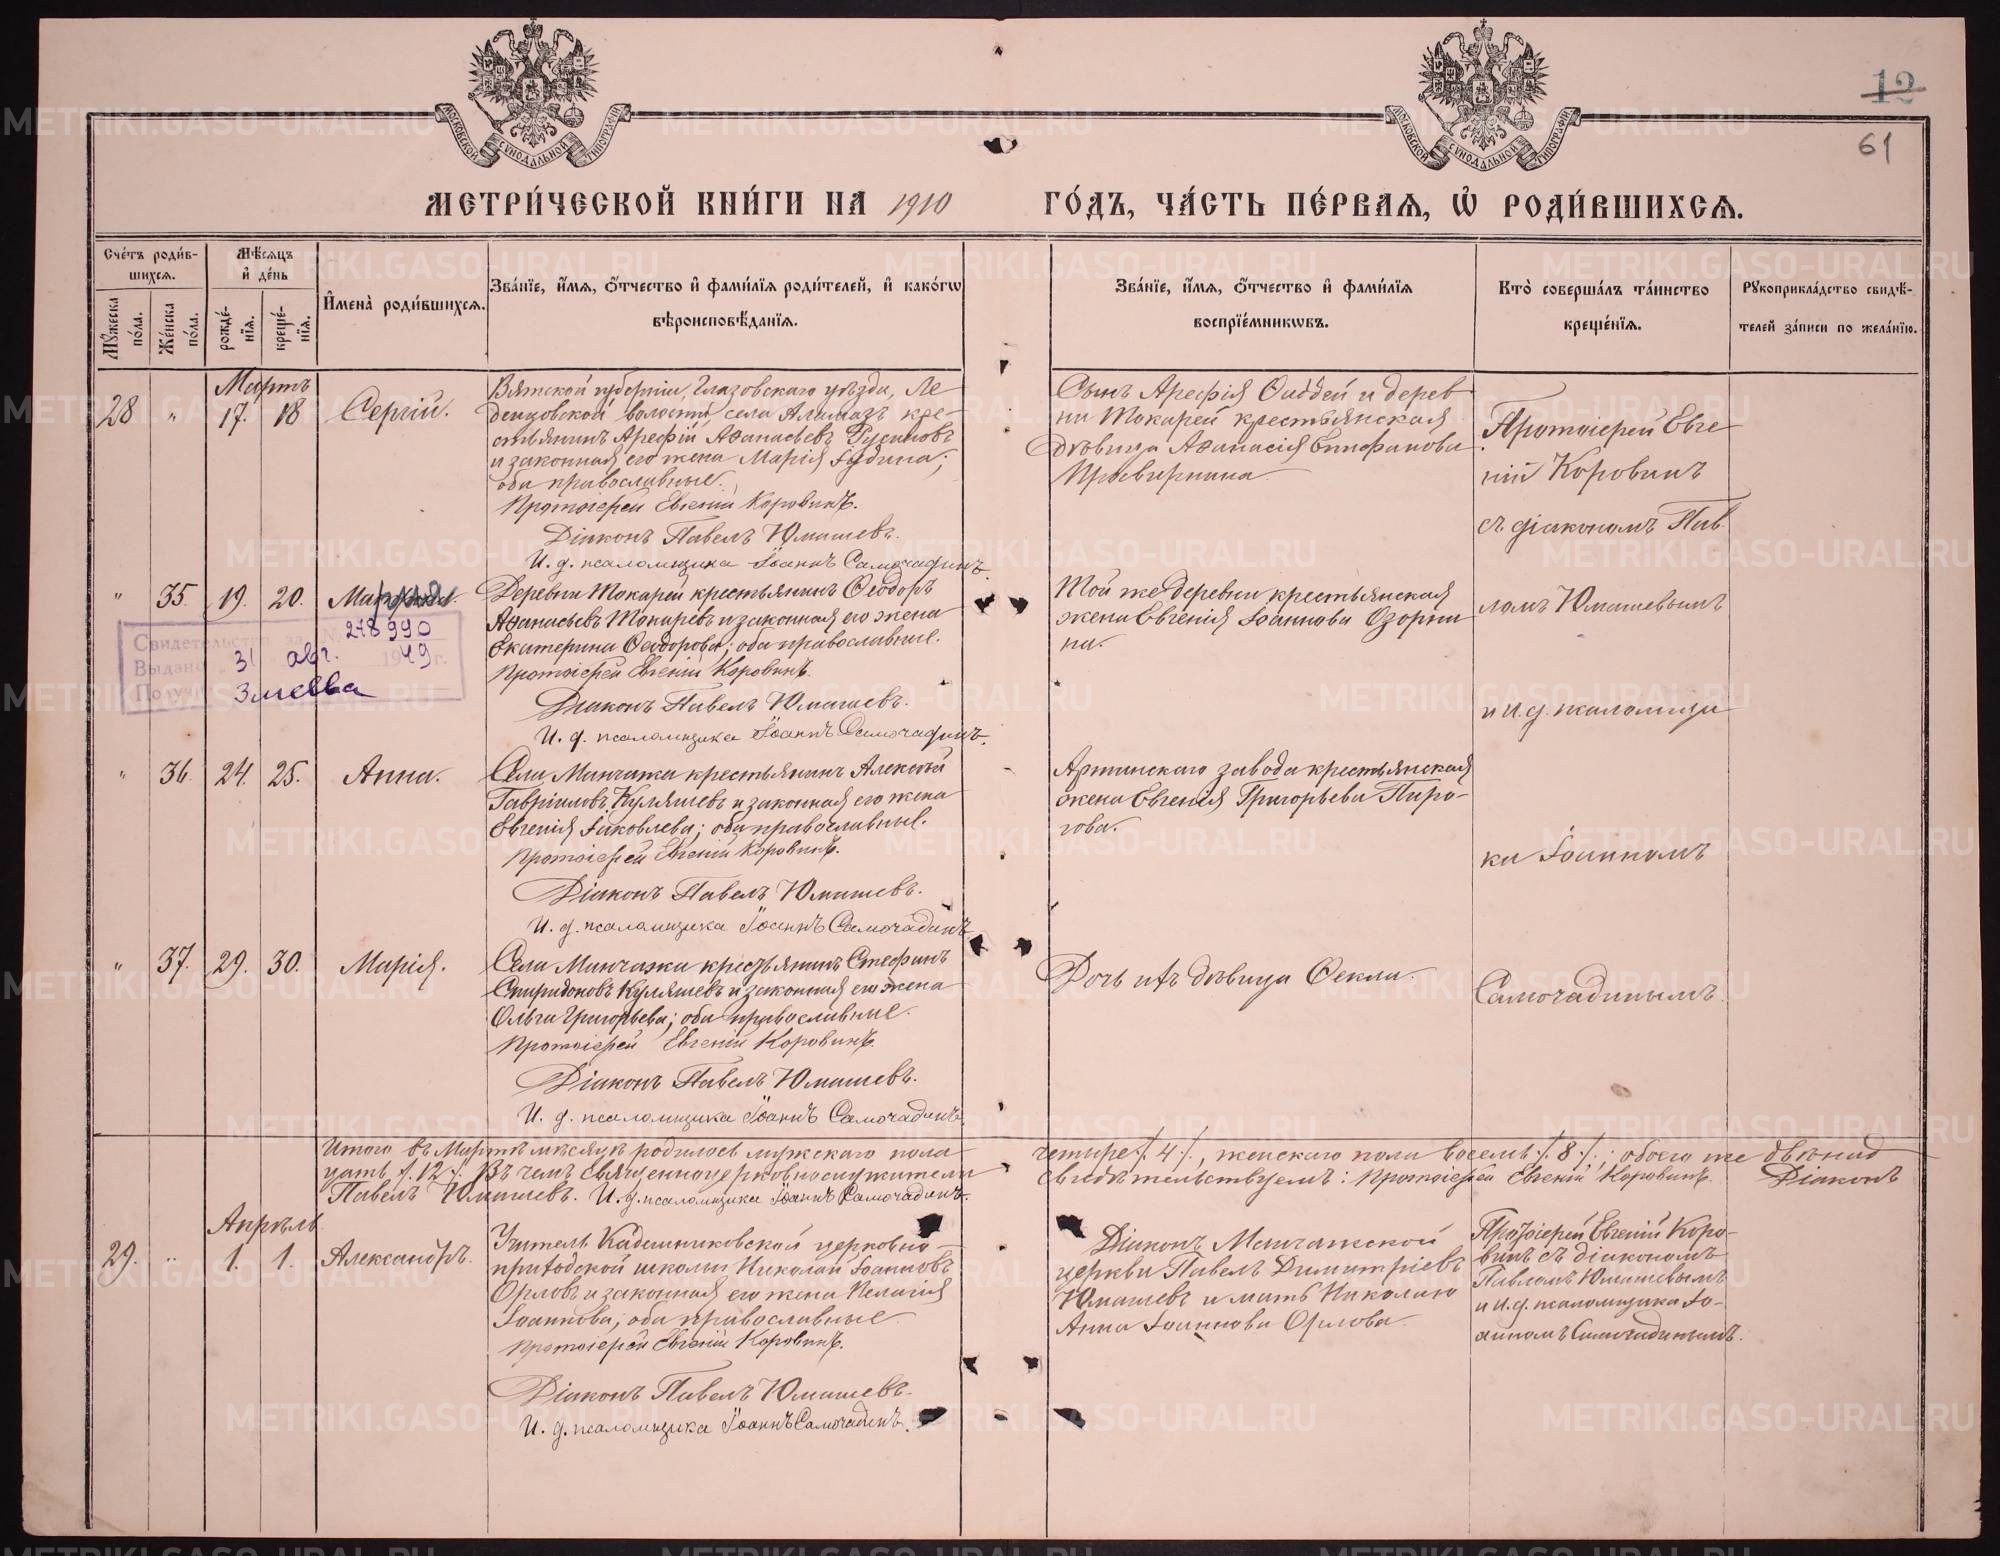 МОСКОВСКОЙ СѴНОДАЛЬНОЙ ТИПОГРАФІИ
МОСКОВСКОЙ СѴНОДАЛЬНОЙ ТИПОГРАФІИ
12
61
МЕТРИ́ЧЕСКОЙ КНИ́ГИ НА 1910 ГО́ДЪ, ЧА́СТЬ ПЕ́РВАѦ, Ѡ҆ РОДИ́ВШИХСѦ.
Сче́тъ роди́вшихсѧ.
Мꙋ́жеска по́ла.
Же́нска по́ла.
Мѣ́сѧцъ и҆ де́нь
рожде́нїѧ.
креще́нїѧ.
И҆мена̀ роди́вшихсѧ.
Зва́нїе, и҆́мѧ, ѻ҆́тчество и҆ фами́лїѧ роди́телей, и҆ како́гѡ
вѣроисповѣ́данїѧ.
Зва́нїе, и҆́мѧ, ѻ҆́тчество и҆ фами́лїѧ
воспрїе́мникѡвъ.
Кто̀ соверша́лъ та́инство
креще́нїѧ.
Рꙋкоприкла́дство свидѣ́-
телей за́писи по жела́нїю.
Мартъ
28 " 17. 18 Сергій.
Вятской губерніи, Глазовскаго уѣзда, Ле
денцовской волости, села Алашазъ кре-
стьянинъ Арефій Аѳанасьевъ Русиновъ
и законная его жена Марія Іудина;
оба православные.
Протоіерей Евгеній Коровинъ.
Діаконъ Павелъ Юмашевъ.
И. д. псаломщика Іоаннъ Самочадинъ.
Сынъ Арефія Ѳаддей и дерев
ни Токарей крестьянская
дѣвица Аѳанасія Епифанова
Просвирнина.
Протоіерей Евге
ній Коровинъ
съ діакономъ Пав
ломъ Юмашевымъ
и И. д. псаломщи
ка Іоанномъ
Самочадинымъ.
" 35. 19. 20.
Деревни Токарей крестьянинъ Ѳеодоръ
Аѳанасьевъ Токаревъ и законная его жена
Екатерина Ѳеодорова; оба православные.
Протоіерей Евгеній Коровинъ.
Діаконъ Павелъ Юмашевъ.
И. д. псаломщика Іоаннъ Самочадинъ.
Той же деревни крестьянская
жена Евгенія Іоаннова Озорни
на.
Свидетельство за № 218990
Выдано 31 авг. 1949 г.
Получ. Змеева
" 36. 24. 25. Анна.
Села Манчажа крестьянинъ Алексѣй
Гавріиловъ Куляшевъ и законная его жена
Евгенія Іаковлева; оба православные.
Протоіерей Евгеній Коровинъ.
Діаконъ Павелъ Юмашевъ.
И. д. псаломщика Іоаннъ Самочадинъ.
Артинскаго завода крестьянская
жена Евгенія Григорьева Пиро-
гова.
" 37. 29. 30. Марія.
Села Манчажа крестьянинъ Стефанъ
Спиридоновъ Куляшевъ и законная его жена
Ольга Григорьева; оба православные.
Протоіерей Евгеній Коровинъ.
Діаконъ Павелъ Юмашевъ.
И. д. псаломщика Іоаннъ Самочадинъ.
Дочь ихъ дѣвица Ѳекла.
Итого въ Мартѣ мѣсяцѣ родилось мужскаго пола четыре /.4./, женскаго пола восемь /.8./; обоего же двѣнад
цать /.12./. Въ чемъ священноцерковнослужители свидѣтельствуемъ: Протоіерей Евгеній Коровинъ. Діаконъ
Павелъ Юмашевъ. И. д. псаломщика Іоаннъ Самочадинъ.
Апрѣль
29. " 1. 1. Александръ.
Учитель Кадошниковской церковно-
приходской школы Николай Іоанновъ
Орловъ и законная его жена Пелагія
Іоаннова; оба православные.
Протоіерей Евгеній Коровинъ.
Діаконъ Павелъ Юмашевъ.
И. д. псаломщика Іоаннъ Самочадинъ.
Діаконъ Манчажской
церкви Павелъ Димитріевъ
Юмашевъ и мать Николаю
Анна Іоаннова Орлова.
Протоіерей Евгеній Коро-
винъ съ діакономъ
Павломъ Юмашевымъ
и И. д. псаломщика Іо-
анномъ Самочадинымъ.
METRIKI.GASO-URAL.RU